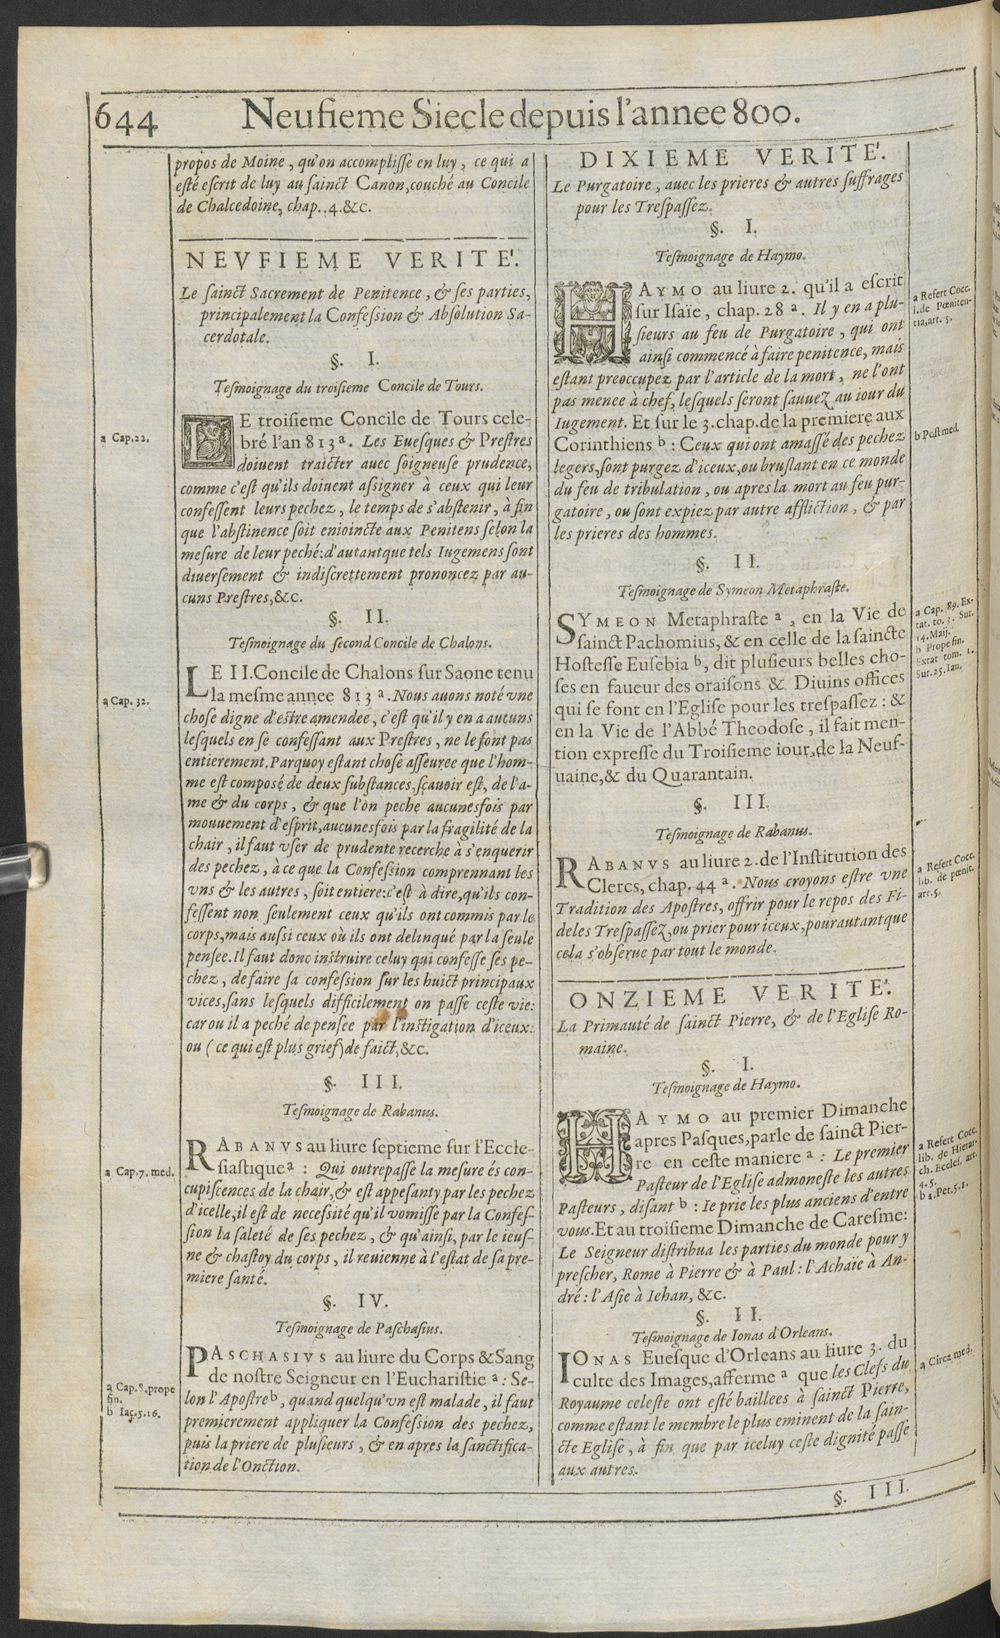 644
Neufieme Siecle depuis l'annee 800.
propos de Moine, qu'on accomplisse en luy, ce qui a
esté escrit de luy au sainct Canon, couché au Concile
de Chalcedoine, chap..4.&c.
NEVFIEME VERITE'.
Le sainct Sacrement de Penitence, & ses parties,
principalement la Confession & Absolution Sa-
cerdotale.
§. I.
Tesmoignage du troisieme Concile de Tours.
a Cap.22.
LE troisieme Concile de Tours cele-
bré l'an 813 a. Les Euesques & Prestres
doiuent traicter auec soigneuse prudence,
comme c'est qu'ils doiuent assigner à ceux qui leur
confessent leurs pechez, le temps de s'abstenir, à fin
que l'abstinence soit enioincte aux Penitens selon la
mesure de leur peché: d'autant que tels Iugemens sont
diuersement & indiscrettement prononcez par au-
cuns Prestres, &c.
§. II.
Tesmoignage du second Concile de Chalons.
a Cap. 32.
LE II. Concile de Chalons sur Saone tenu
la mesme annee 813 a. Nous auons noté vne
chose digne d'estre amendee, c'est qu'il y en a aucuns
lesquels en se confessant aux Prestres, ne le font pas
entierement. Parquoy estant chose asseuree que l'hom-
me est composé de deux substances, sçauoir est, de l'a-
me & du corps, & que l'on peche aucunesfois par
mouuement d'esprit, aucunesfois par la fragilité de la
chair, il faut vser de prudente recerche à s'enquerir
des pechez, à ce que la Confession comprennant les
vns & les autres, soit entiere: c'est à dire, qu'ils con-
fessent non seulement ceux qu'ils ont commis par le
corps, mais aussi ceux où ils ont delinqué par la seule
pensee. Il faut donc instruire celuy qui confesse ses pe-
chez, de faire sa confession sur les huict principaux
vices, sans lesquels difficilement on passe ceste vie:
car ou il a peché de pensee par l'instigation d'iceux:
ou (ce qui est plus grief) de faict, &c.
§. III.
Tesmoignage de Rabanus.
a Cap.7. med.
RABANVS au liure septieme sur l'Eccle-
siastique a : Qui outrepasse la mesure és con-
cupiscences de la chair, & est appesanty par les pechez
d'icelle, il est de necessité qu'il vomisse par la Confes-
sion la saleté de ses pechez, & qu'ainsi, par le ieus-
ne & chastoy du corps, il reuienne à l'estat de sa pre-
miere santé.
§. IV.
Tesmoignage de Paschasius.
a Cap.8. prope
fin.
b Iac.5.16.
PASCHASIVS au liure du Corps & Sang
de nostre Seigneur en l'Eucharistie a : Se-
lon l'Apostre b, quand quelqu'vn est malade, il faut
premierement appliquer la Confession des pechez,
puis la priere de plusieurs, & en apres la sanctifica-
tion de l'Onction.
DIXIEME VERITE'.
Le Purgatoire, auec les prieres & autres suffrages
pour les Trespassez.
§. I.
Tesmoignage de Haymo.
HAYMO au liure 2. qu'il a escrit
sur Isaïe, chap. 28 a. Il y en a plu-
sieurs au feu de Purgatoire, qui ont
ainsi commencé à faire penitence, mais
estant preoccupez par l'article de la mort, ne l'ont
pas menee à chef, lesquels seront sauuez au iour du
Iugement. Et sur le 3. chap. de la premiere aux
Corinthiens b : Ceux qui ont amassé des pechez
legers, sont purgez d'iceux, ou bruslant en ce monde
du feu de tribulation, ou apres la mort au feu pur-
gatoire, ou sont expiez par autre affliction, & par
les prieres des hommes.
a Refert Cocc.
l. de Pœniten-
tia, art. 5.
b Post med.
§. II.
Tesmoignage de Symeon Metaphraste.
SYMEON Metaphraste a, en la Vie de
sainct Pachomius, & en celle de la saincte
Hostesse Eusebia b, dit plusieurs belles cho-
ses en faueur des oraisons & Diuins offices
qui se font en l'Eglise pour les trespassez: &
en la Vie de l'Abbé Theodose, il fait men-
tion expresse du Troisieme iour, de la Neuf-
uaine, & du Quarantain.
a Cap. 89. Ex-
tat. to. 3. Sur.
14. Maij.
b Prope fin.
Extat tom. 1.
Sur. 25. Ian.
§. III.
Tesmoignage de Rabanus.
RABANVS au liure 2. de l'Institution des
Clercs, chap. 44 a. Nous croyons estre vne
Tradition des Apostres, offrir pour le repos des Fi-
deles Trespassez, ou prier pour iceux, pourautant que
cela s'obserue par tout le monde.
a Refert Cocc.
lib. de pœnit.
art. 5.
ONZIEME VERITE'.
La Primauté de sainct Pierre, & de l'Eglise Ro-
maine.
§. I.
Tesmoignage de Haymo.
HAYMO au premier Dimanche
apres Pasques, parle de sainct Pier-
re en ceste maniere a : Le premier
Pasteur de l'Eglise admoneste les autres
Pasteurs, disant b : Ie prie les plus anciens d'entre
vous. Et au troisieme Dimanche de Caresme:
Le Seigneur distribua les parties du monde pour y
prescher, Rome à Pierre & à Paul: l'Achaïe à An-
dré: l'Asie à Iehan, &c.
a Refert Cocc.
lib. de Hierar-
ch. Eccles. art.
4. 5.
b 1. Pet. 5. 1.
§. II.
Tesmoignage de Ionas d'Orleans.
IONAS Euesque d'Orleans au liure 3. du
culte des Images, afferme a que les Clefs du
Royaume celeste ont esté baillees à sainct Pierre,
comme estant le membre le plus eminent de la sain-
cte Eglise, à fin que par iceluy ceste dignité passe
aux autres.
a Circa med.
§. III.